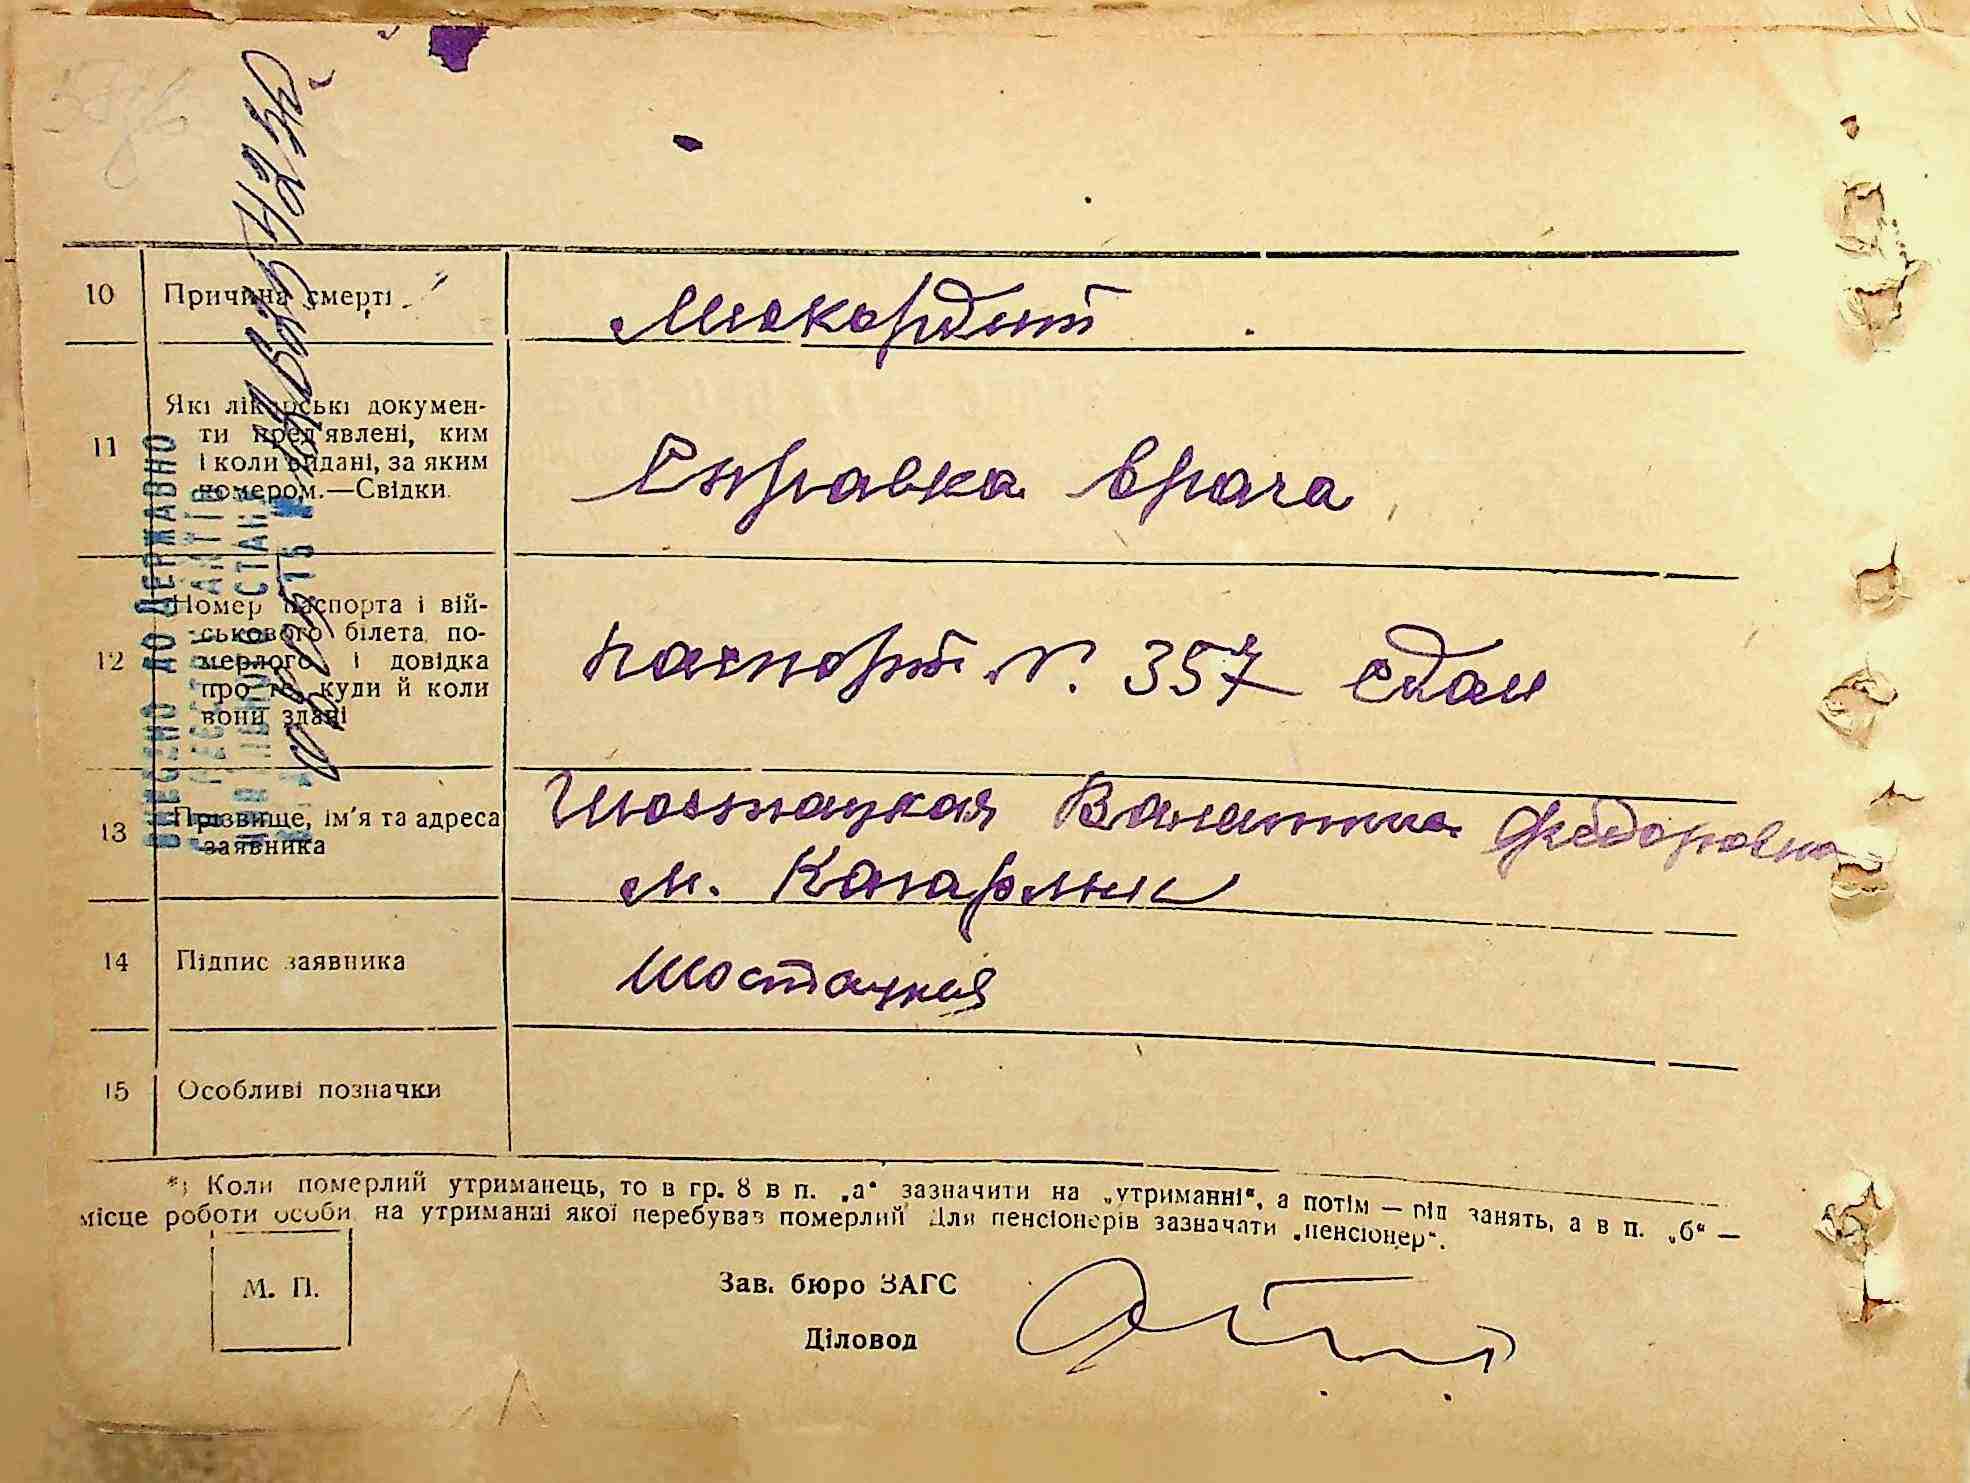 10 Причина смерті
Миокардит
11 Які лікарські докумен-
ти пред'явлені, ким
і коли видані, за яким
номером.—Свідки.
Справка врача
12 Номер паспорта і вій-
ськового білета по-
мерлого і довідка
про те, куди й коли
вони здані
паспорт №. 357 сдан
13 Прізвище, ім'я та адреса
заявника
Шостацкая Валентина Федоровна
м. Кагарлик
14 Підпис заявника
Шостацкая
15 Особливі позначки
*) Коли померлий утриманець, то в гр. 8 в п. „а“ зазначити на „утриманні“, а потім — рід занять, а в п. „б“ —
місце роботи особи, на утриманні якої перебував померлий Для пенсіонерів зазначати „пенсіонер“.
М. П.
Зав. бюро ЗАГС
Діловод
ВНЕСЕНО ДО ДЕРЖАВНО